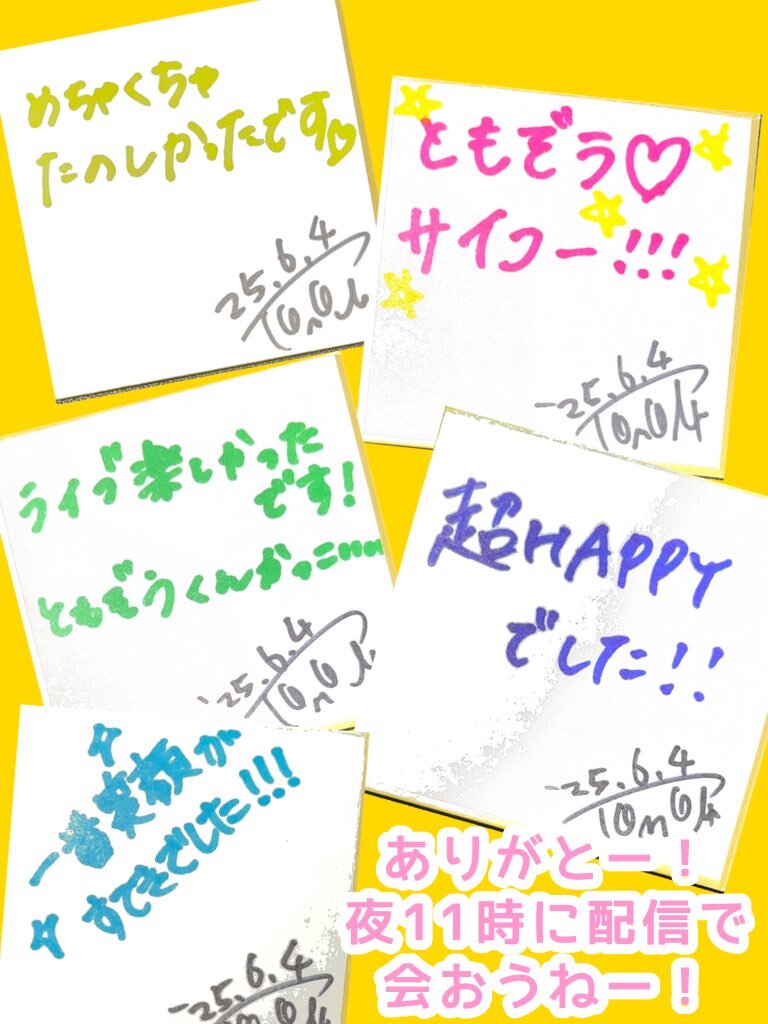 めちゃくちゃ
たのしかったです♡
'25.6.4
ともぞう♡
サイコー!!!
'25.6.4
ライブ楽しかった
です!
ともぞうくんかっこ
'25.6.4
超HAPPY
でした!!
'25.6.4
一番笑顔が
すてきでした!!!
'25.6.4
ありがとー！
夜11時に配信で
会おうねー！